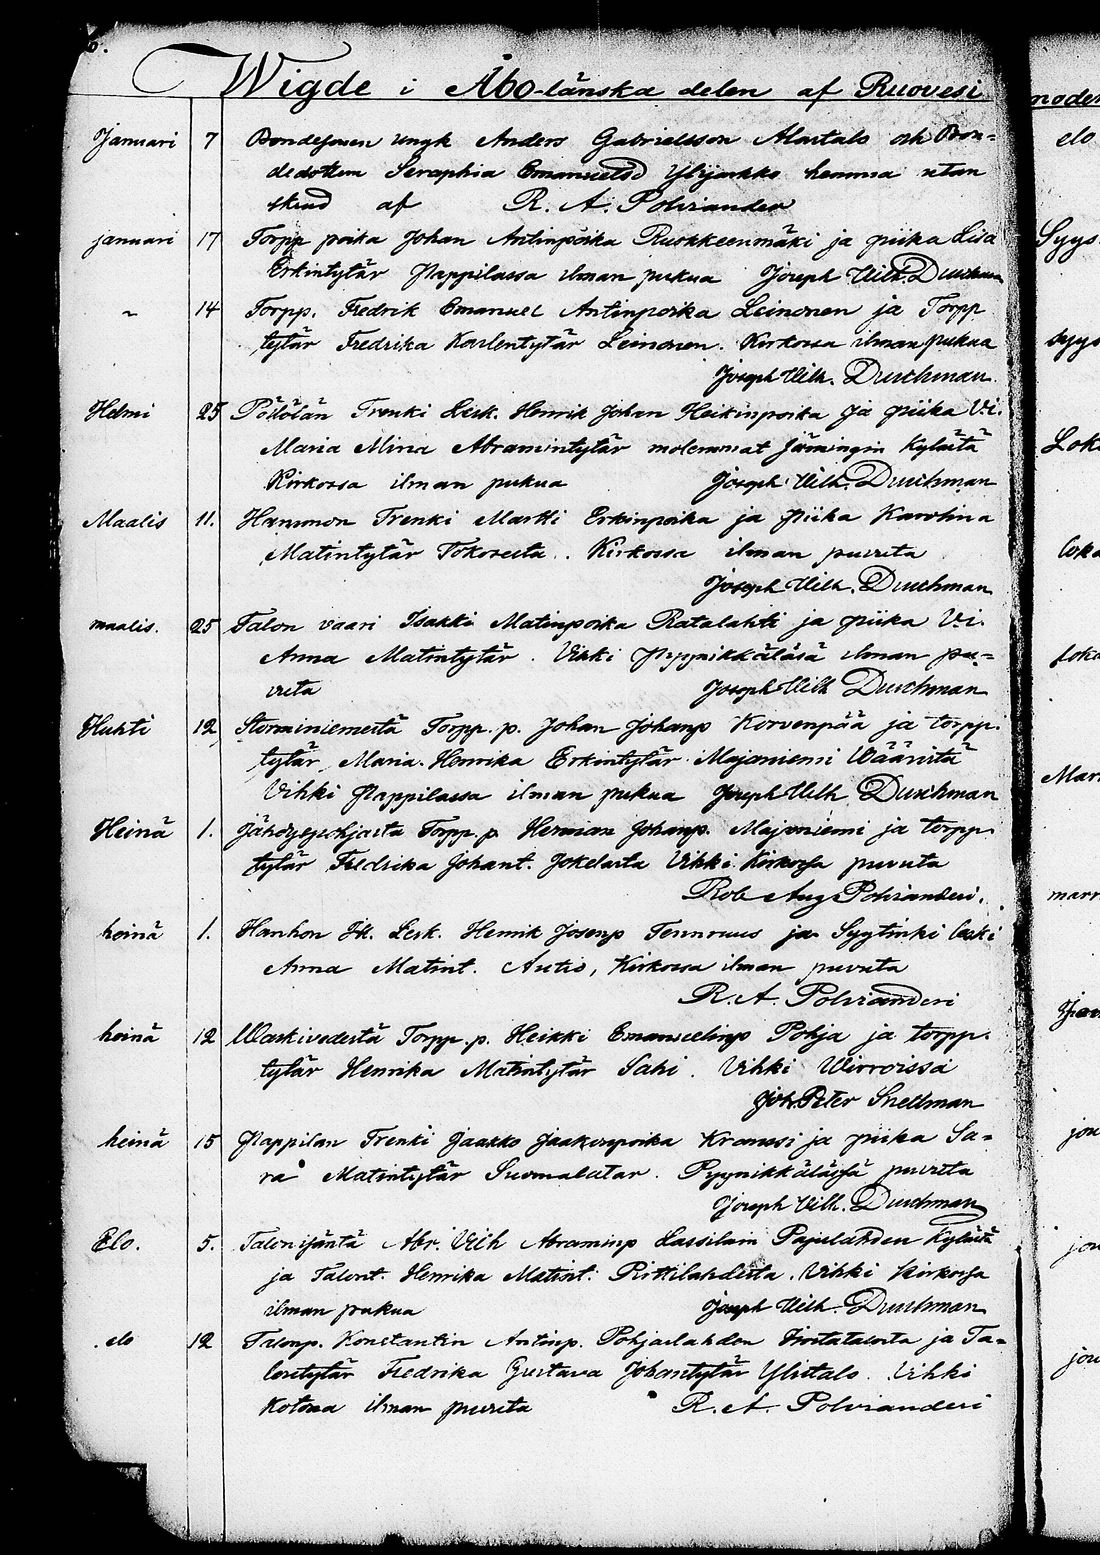 6.
Wigde i Åbo-länska delen af Ruovesi
Januari 7 Bondesonen yngk Anders Gabrielsson Alastalo och Bon-
dedottern Seraphia Emanuelsd Ylijaakko hemma utan
skrud af R. A. Polviander
januari 17 Torpp poika Johan Antinpoika Ruokkeenmäki ja piika Lisa
Erkintytär Pappilassa ilman pukua Joseph Vilh. Duschman
" 14 Torpp. Fredrik Emanuel Antinpoika Leinonen ja Torpp
tytär Fredrika Karlentytär Leinonen. Kirkossa ilman pukua
Joseph Vilh. Duschman.
Helmi 25 Pölölän Trenki Lesk. Henrik Johan Heikinpoika ja piika V.i.
Maria Mina Abramintytär molemmat Jämingin Kylästä
Kirkossa ilman pukua Joseph Vilh. Duschman
Maalis 11. Hannonon Trenki Martti Erkinpoika ja piika Karolina
Matintytär Tokoresta. Kirkossa ilman puvuta
Joseph Vilh. Duschman
maalis. 25 Talon vaari Isakki Matinpoika Ratalahti ja piika V.i.
Anna Matintytär. Vihki Pyynikkälässä ilman pu-
vuta Joseph Vilh Duschman
Huhti 12 Storminiemestä Torpp. p. Johan Johanp Korvenpää ja torpp.
tytär, Maria. Henrika Erkintytär Majaniemi Wääristä
Vihki Pappilassa ilman pukua Joseph Vilh Duschman
Heinä 1. Jähdyspohjasta Torpp. p. Herman Johanp. Majaniemi ja torpp.
tytär Fredrika Johant. Jokelasta Vihki. Kirkossa puvuta
Rob Aug Polvianderi.
heinä 1. Hanhon Itl. Lesk. Henrik Josenp Tennruus ja Syytinki leski
Anna Matint. Autio, Kirkossa ilman puvuta
R. A. Polvianderi
heinä 12 Waskivedestä Torpp. p. Heikki Emanuelinp Pohja ja torpp.
tytär Henrika Matintytär Sahi. Vihki Wirroissa
Joh. Peter Snellman
heinä 15 Pappilan Trenki Jaakko Jaakonpoika Kranssi ja piika Sa-
ra Matintytär Suomalatar. Pyynikkälässä puvuta
Joseph Vilh. Duschman
Elo. 5. Talonisäntä Abr. Vilh Abraminp Lassilain Pajulahden Kylästä
ja Talont. Henrika Matint. Rittilahdesta. Vihki kirkossa
ilman pukua Joseph Vilh. Duschman
elo 12 Talonp. Konstantin Antinp. Pohjaslahden ja Ta-
lontytär Fredrika Gustava Johantytär Ylistalo. Vihki
Kotona ilman puvuta R. A. Polvianderi
elo
Syys
syys
Loka
loka
Marr
marr
jou
jou
jou